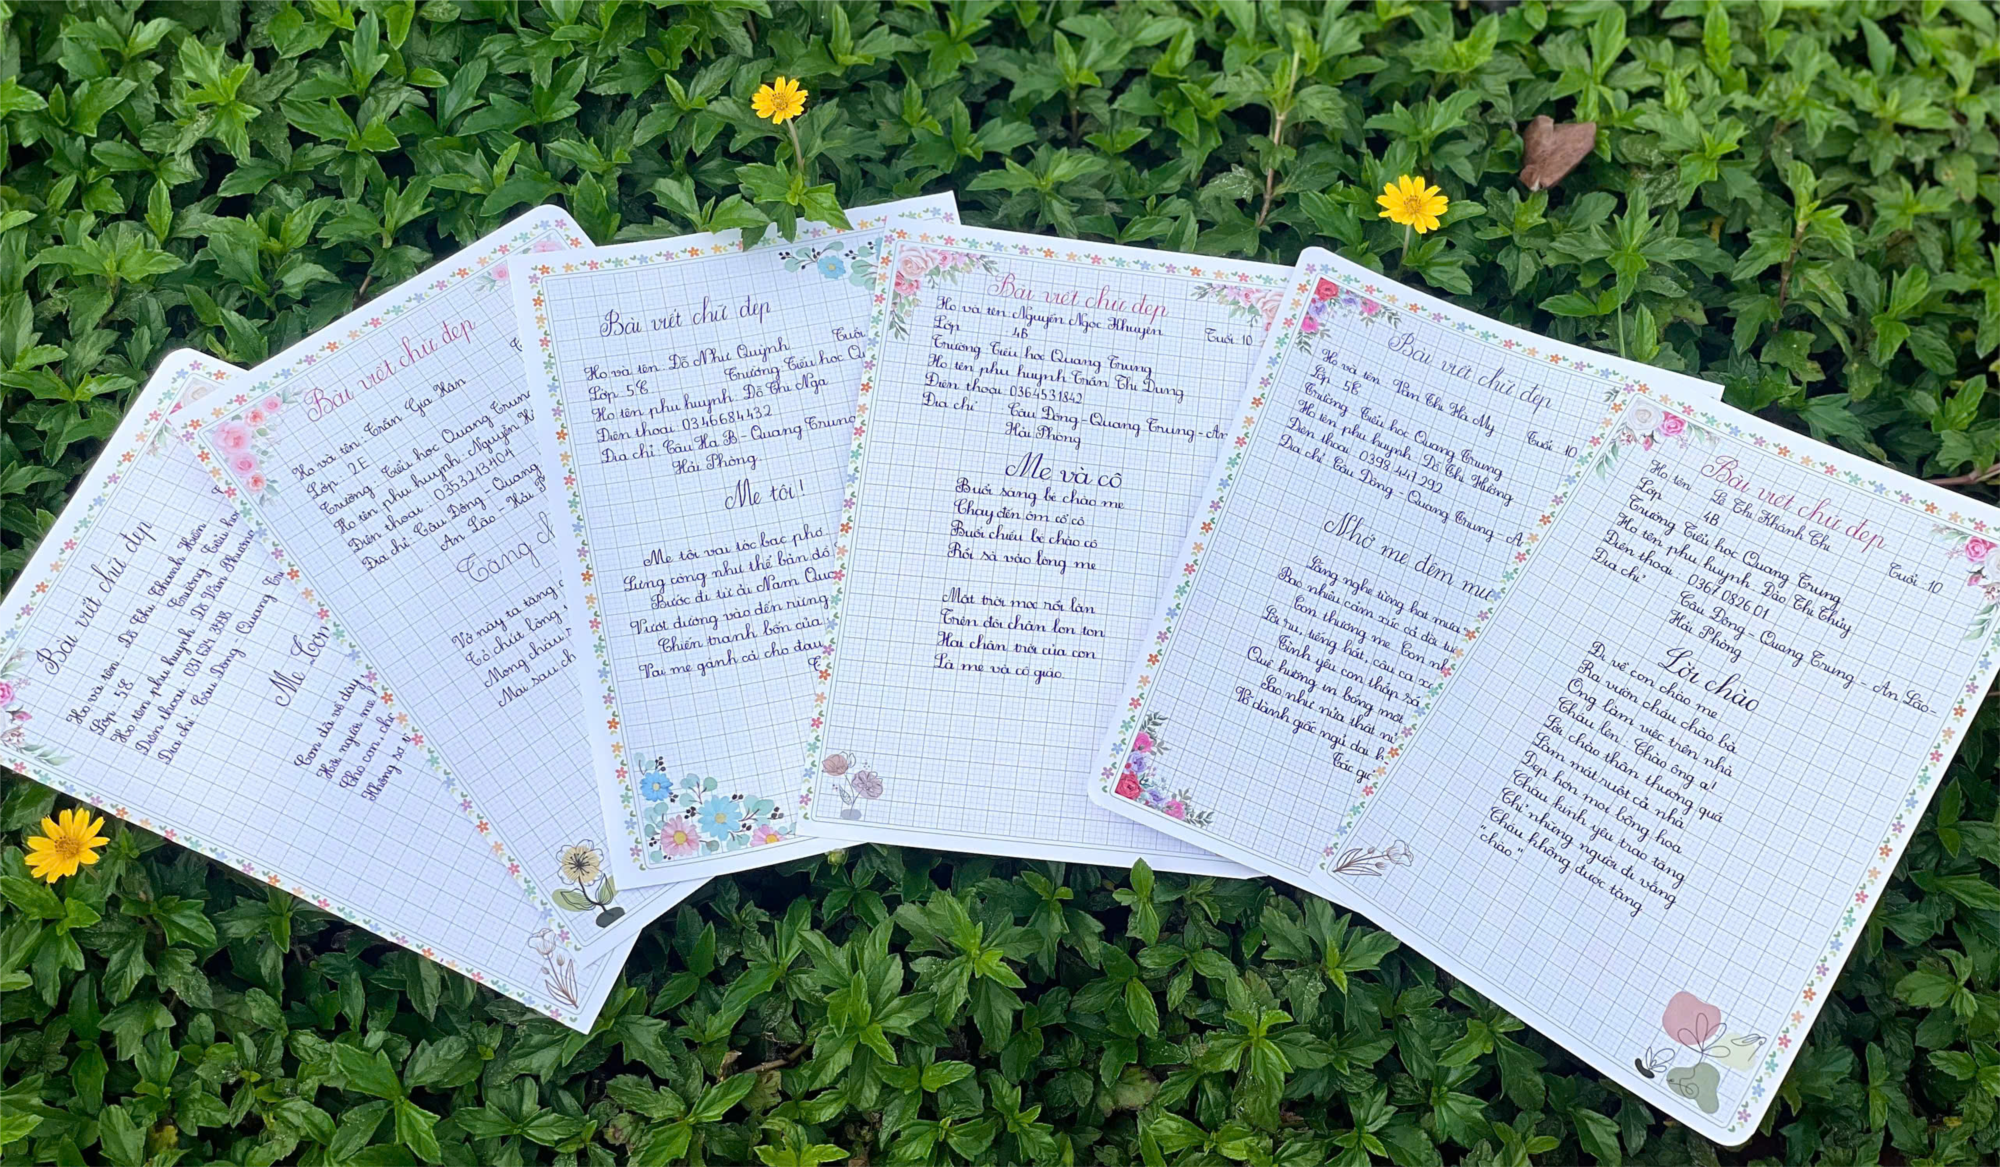 Bài viết chữ đẹp
Họ và tên Đỗ Thị Thanh Hiền
Lớp 5B Trường Tiểu
Họ tên phụ huynh Đỗ Văn
Điện thoại 031 624 3588
Địa chỉ Câu Đông Quang
Mẹ
Con đã về đây
Hỡi người mẹ
Cho con
Không
Bài viết chữ đẹp
Họ và tên: Trần Gia Hân
Lớp : 2E
Trường Tiểu học Quang Trung
Họ tên phụ huynh: Nguyễn
Điện thoại : 0353213404
Địa chỉ Câu Đông - Quang
An Lão - Hải
Tặng
Vở này ta tặng
Tỏ chút lòng
Mong cháu
Mai sau
Bài viết chữ đẹp
Tuổi
Họ và tên Đỗ Như Quỳnh
Lớp 5B Trường Tiểu học
Họ tên phụ huynh Đỗ Thị Nga
Điện thoại: 03 46684432
Địa chỉ: Câu Hạ B - Quang Trung
Hải Phòng.
Mẹ tôi!
Mẹ tôi vai tóc bạc phơ
Lưng còng như thể bản đồ
Bước đi từ ải Nam
Vượt dương vào đến rừng
Chiến tranh bốn của
Vai mẹ gánh cả cho
Bài viết chữ đẹp
Họ và tên Nguyễn Ngọc Khuyên
Lớp 4B Tuổi 10
Trường Tiểu học Quang Trung
Họ tên phụ huynh Trần Thị Dung
Điện thoại 0364531842
Địa chỉ Câu Đông - Quang Trung - An
Hải Phòng
Mẹ và cô
Buổi sáng bé chào mẹ
Chạy đến ôm cổ cô
Buổi chiều bé chào cô
Rồi sà vào lòng mẹ
Mặt trời mọc rồi lặn
Trên đôi chân lon ton
Hai chân trời của con
Là mẹ và cô giáo.
Bài viết chữ đẹp
Họ và tên Văn Thị Hà My
Lớp 5B Tuổi 10
Trường Tiểu học Quang Trung
Họ tên phụ huynh Đỗ Thị Hường
Điện thoại 0398 447 292
Địa chỉ: Câu Đông - Quang Trung - A
Nhớ mẹ đêm
Lắng nghe tiếng hạt mưa
Bao nhiêu cảm xúc cả đời
Con thương mẹ. Con
Lời ru, tiếng hát, câu ca
Tình yêu con thắp
Quê hương in bóng một
Sao như nửa thật
Vỗ dành giấc ngủ
Tác
Bài viết chữ đẹp
Họ tên Lê Thị Khánh Chi
Lớp 4B Tuổi 10
Trường Tiểu học Quang Trung
Họ tên phụ huynh Đào Thị Thủy
Điện thoại : 0367 0826 01
Địa chỉ: Câu Đông - Quang Trung - An Lão -
Hải Phòng
Lời chào
Đi về con chào mẹ
Ra vườn cháu chào bà
Ông làm việc trên nhà
Cháu lên: Chào ông ạ!
Lời chào thân thương quá
Làm mát ruột cả nhà
Đẹp hơn mọi bông hoa
Cháu kính yêu trao tặng
Chỉ những người đi vắng
Cháu không được tặng
"chào"